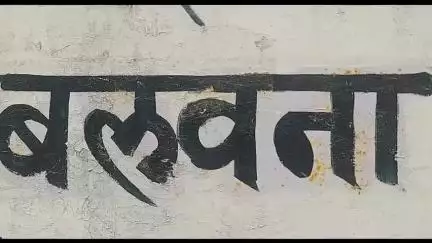 बलवना